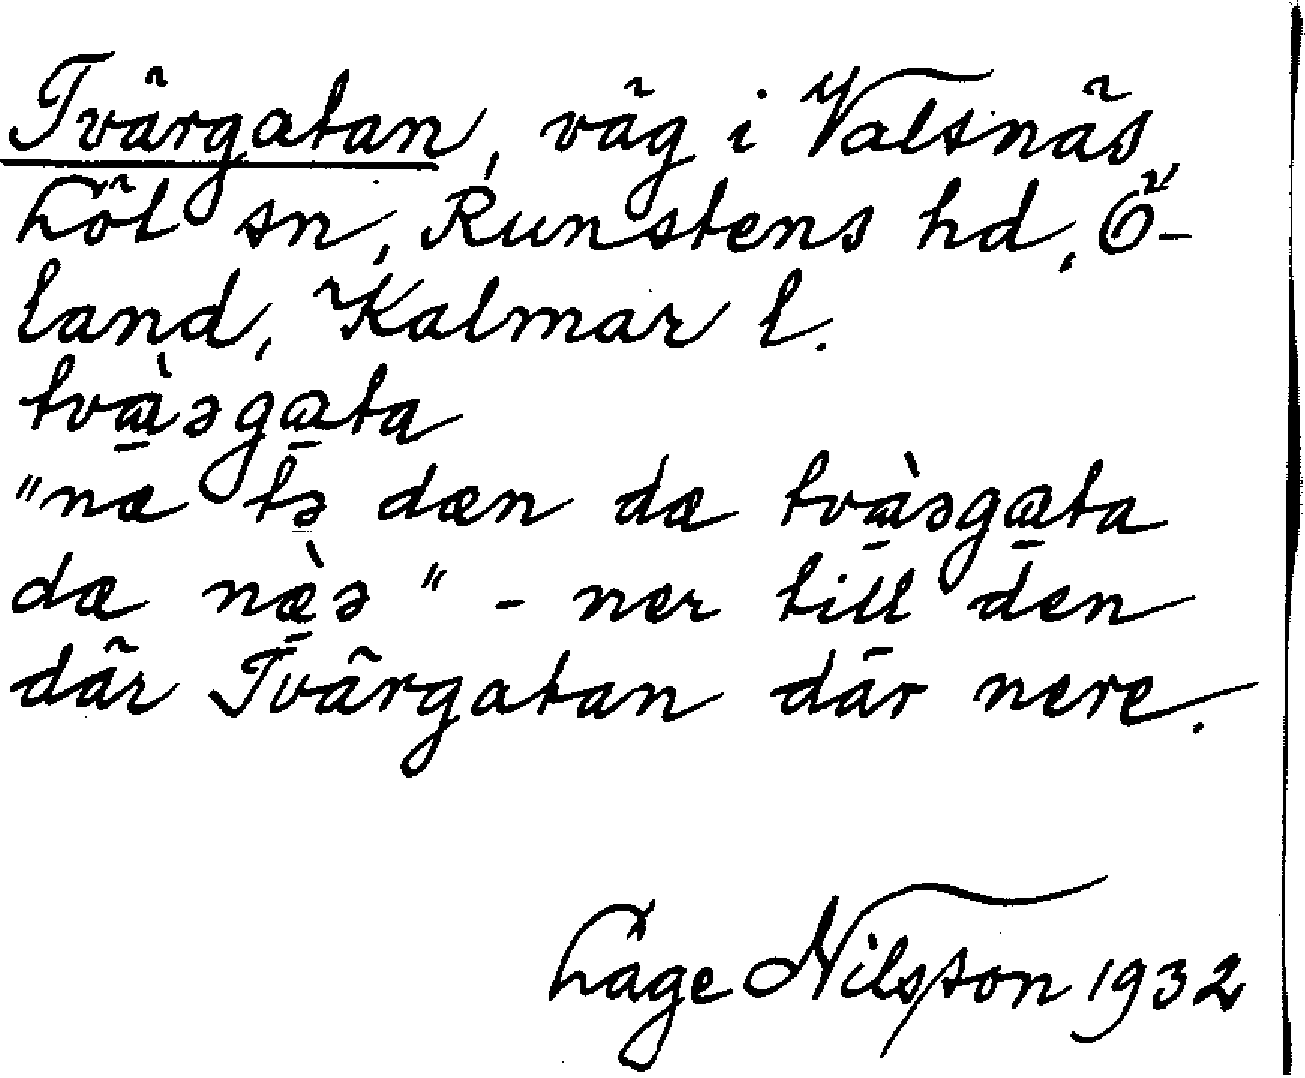 Tvärgatan, väg i Valsnäs,
Löt sn, Runstens hd, Ö-
land, Kalmar l.
tvæ̠̀əgɑ̠ta
"næ tə dæn dæ tvæ̠̀əgɑ̠ta
dæ næ̠̀ə" - ner till den
där Tvärgatan där nere.
Låge Nilsson 1932